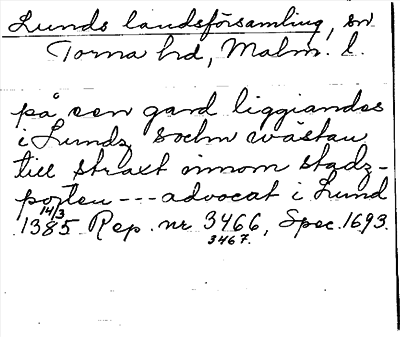 Lunds landsförsamling, sn
Torna hd, Malm. l.
på een gard liggiandes
i Lundz sochn wästan
till straxt innom stadz-
porten --- advocat i Lund
14/3
1385 Rep. nr 3466, Spec. 1693.
3467.